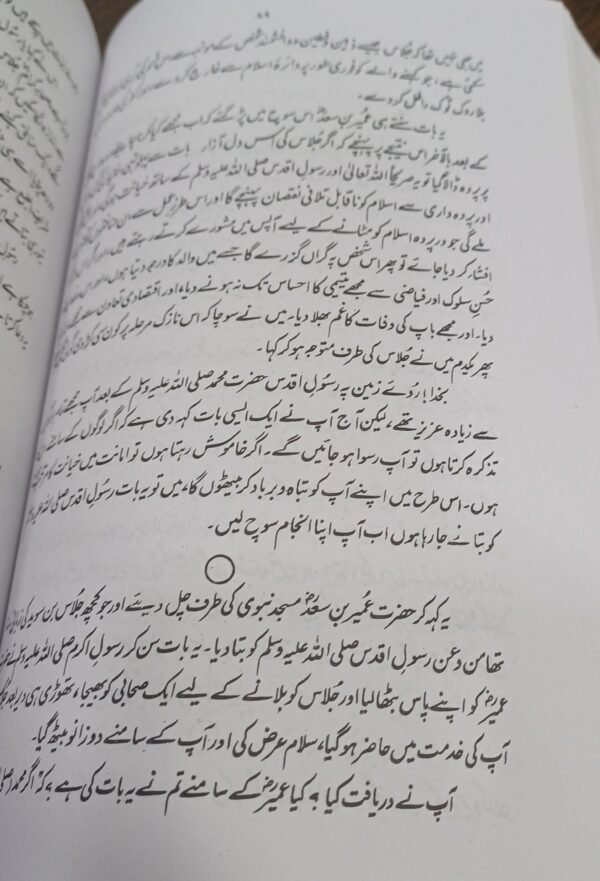 ۸۸
میں بھی نہیں تھا کہ جُلاس جیسے ذہین و فطین و دانشمند شخص کے
سکتی ہے، جو کہنے والے کو فوری طور پر دائرۂ اسلام سے خارج کر دے اور
بلا روک ٹوک داخل کر دے۔
یہ بات سنتے ہی عُمیر بن سعدؓ اس سوچ میں پڑ گئے کہ اب مجھے کیا کرنا چاہیے
کے بعد بالآخر اس نتیجے پر پہنچے کہ اگر جُلاس کی اس دل آزار بات سے
پر پردہ ڈالا گیا تو یہ صریحاً اللہ تعالیٰ اور رسول اقدس صلی اللہ علیہ وسلم کے ساتھ خیانت
اور پردہ داری سے اسلام کو ناقابل تلافی نقصان پہنچے گا اور اس طرز عمل سے ان منافقوں
ملے گی جو در پردہ اسلام کو مٹانے کے لیے آپس میں مشورے کرتے رہتے ہیں، اور اگر
افشار کر دیا جائے تو پھر اس شخص پر گراں گزرے گا جسے میں والد کا درجہ دیتا ہوں، اور اس
حُسنِ سلوک اور فیاضی سے مجھے یتیمی کا احساس تک نہ ہونے دیا، اور اقتصادی تعاون سے مجھے
دیا۔ اور مجھے باپ کی وفات کا غم بھلا دیا۔ میں نے سوچا کہ اس نازک مرحلہ پر کون سی کڑوی گولی
پھر یکدم میں نے جُلاس کی طرف متوجہ ہو کر کہا۔
بخدا! روئے زمین پہ رسول اقدس حضرت محمد صلی اللہ علیہ وسلم کے بعد آپ مجھے
سے زیادہ عزیز تھے، لیکن آج آپ نے ایک ایسی بات کہہ دی ہے کہ اگر لوگوں کے سامنے
تذکرہ کرتا ہوں تو آپ رسوا ہو جائیں گے۔ اگر خاموش رہتا ہوں تو امانت میں خیانت کا
ہوں۔ اس طرح میں اپنے آپ کو تباہ و برباد کر بیٹھوں گا، میں تو یہ بات رسول اقدس صلی اللہ علیہ
کو بتانے جا رہا ہوں اب آپ اپنا انجام سوچ لیں۔
یہ کہہ کر حضرت عُمیر بن سعدؓ مسجد نبوی کی طرف چل دیئے اور جو کچھ جُلاس بن سوید کی زبانی
تھا من و عن رسول اقدس صلی اللہ علیہ وسلم کو بتا دیا۔ یہ بات سن کر رسول اکرم صلی اللہ علیہ وسلم نے
عمیرؓ کو اپنے پاس بٹھا لیا اور جُلاس کو بلانے کے لیے ایک صحابی کو بھیجا، تھوڑی ہی دیر بعد
آپ کی خدمت میں حاضر ہو گیا، سلام عرض کی اور آپ کے سامنے دوزانو بیٹھ گیا۔
آپ نے دریافت کیا؟ کیا عمیرؓ کے سامنے تم نے یہ بات کی ہے؟ کہ اگر محمد